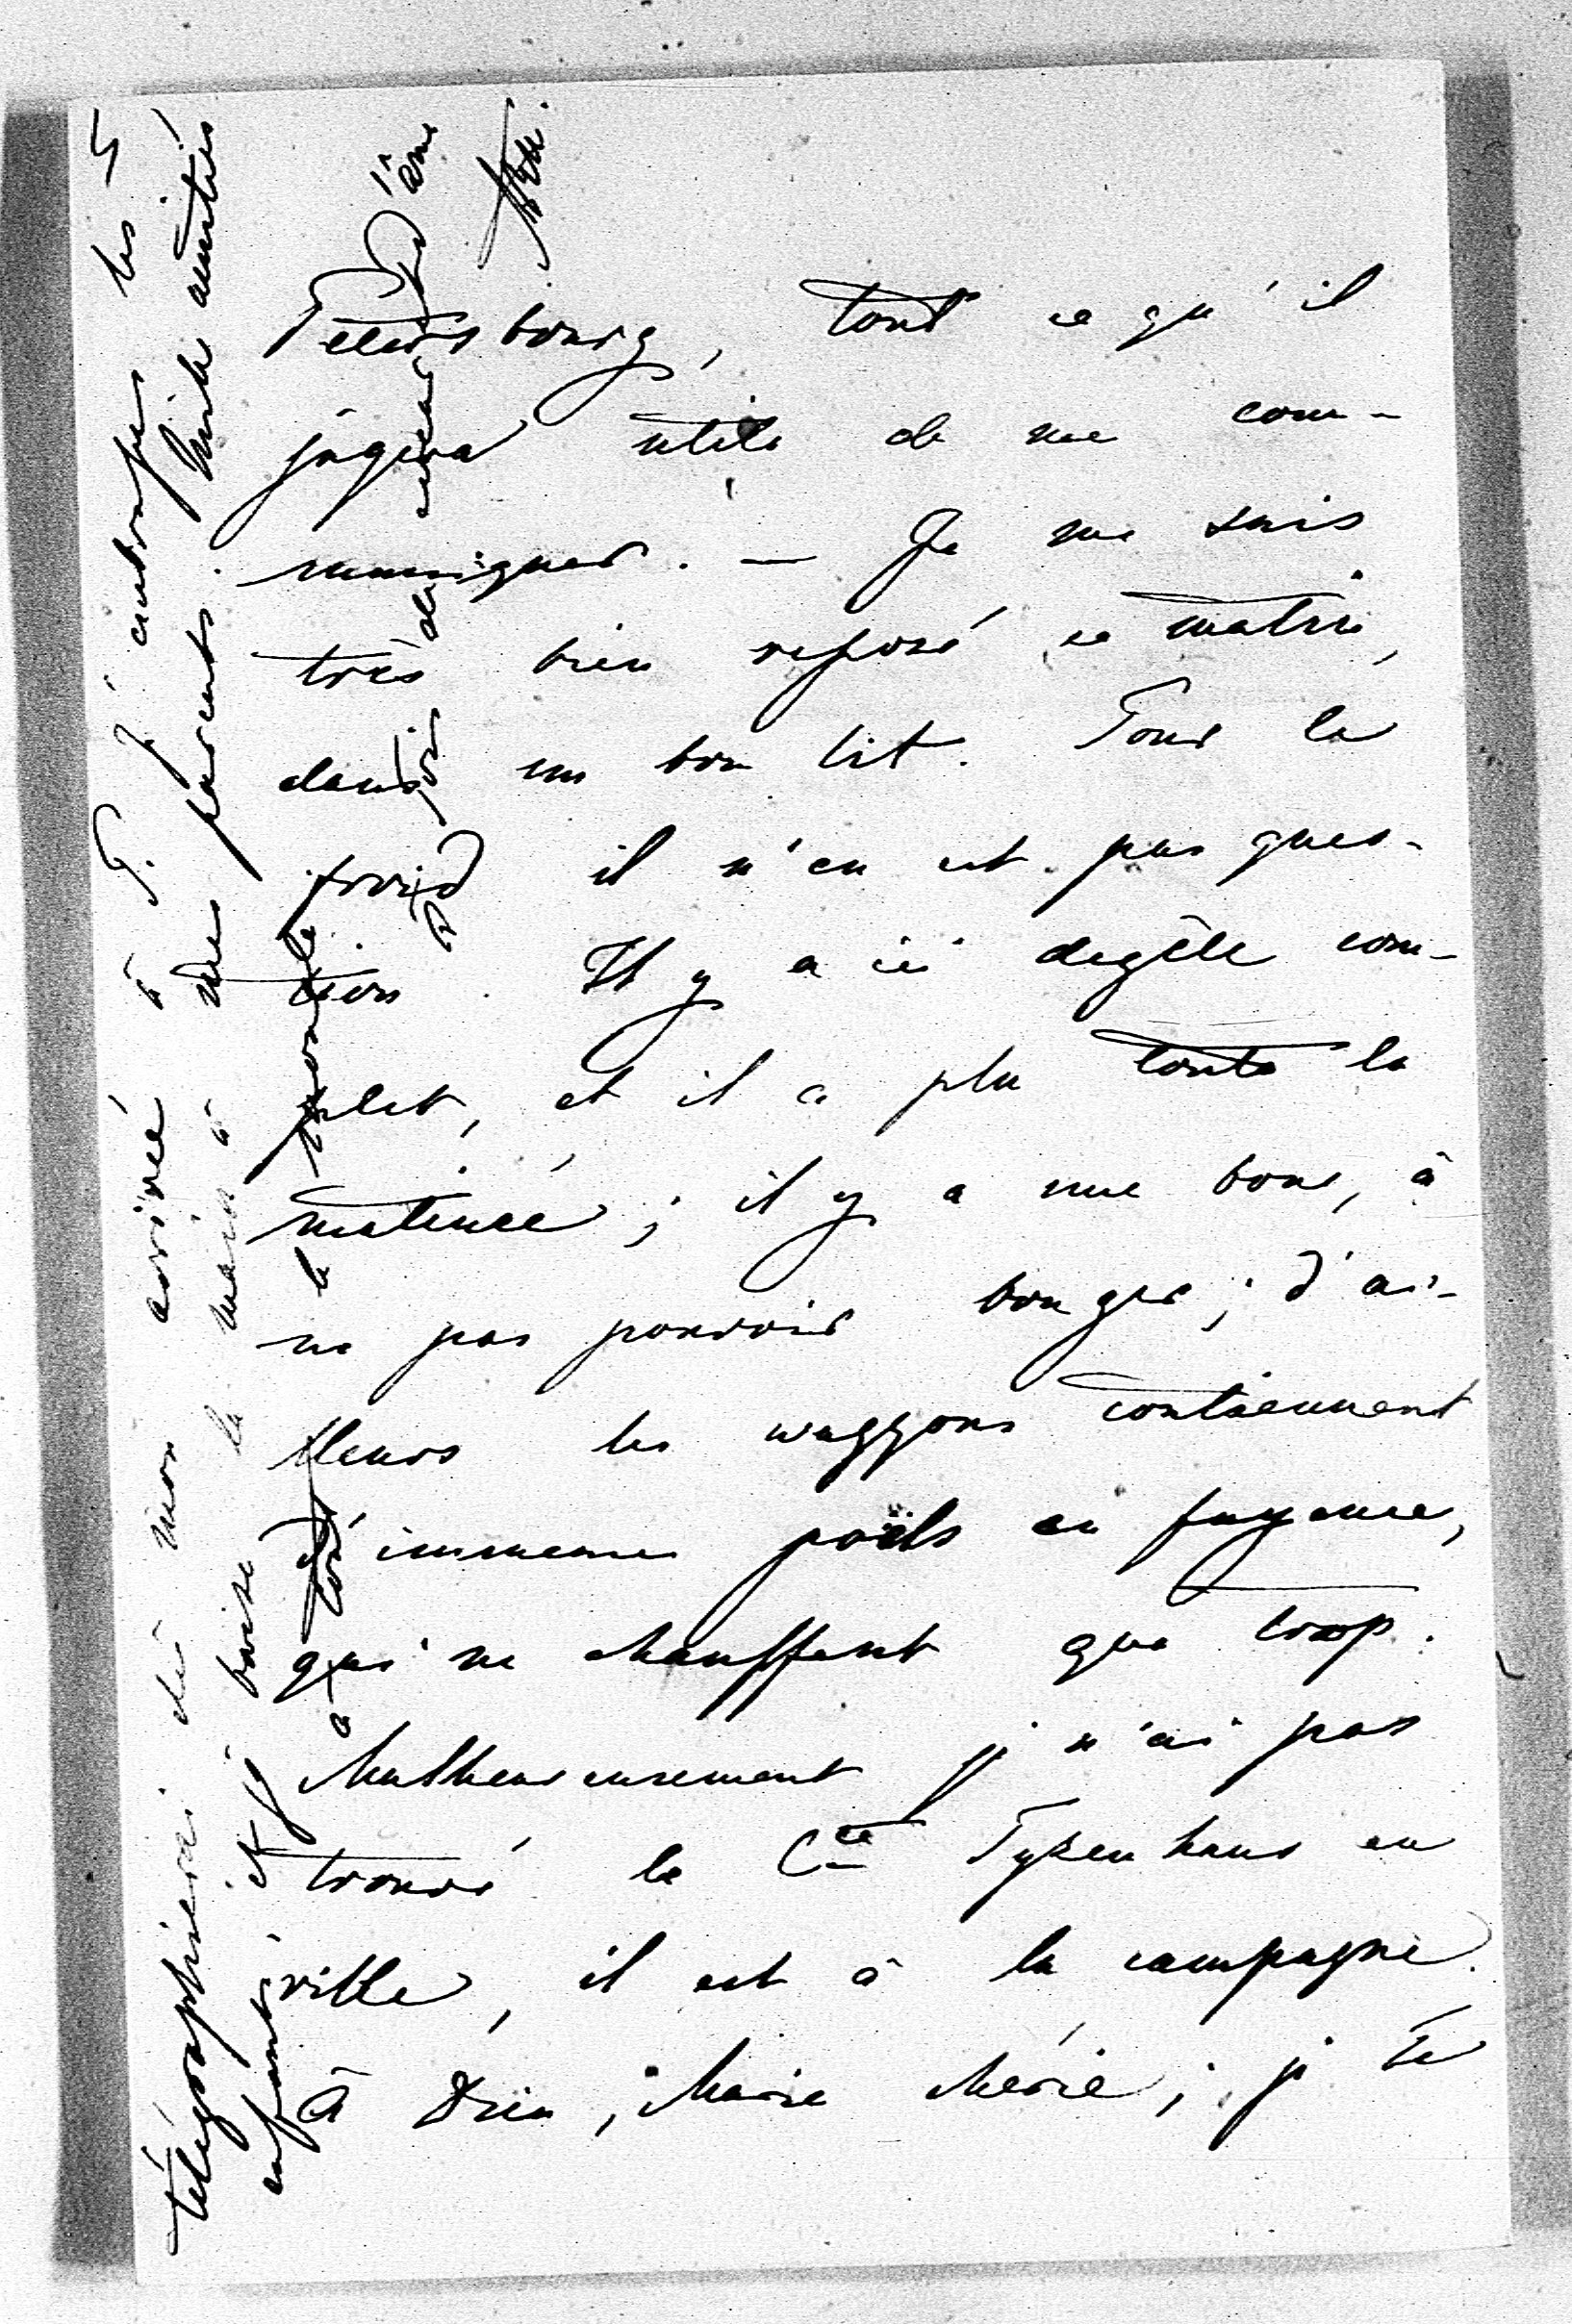 Pétersbourg, tout ce qu'il
jugera utile de me com-
muniquer. — Je me suis
très bien reposé ce matin,
dans un bon lit. Pour le
froid il n'en est pas ques-
tion. Il y a ici dégèle com-
plet, et il a plu toute la
matinée ; il y a une boue, à
ne pas pouvoir bouger ; d'ai-
lleurs les waggons contiennent
d'immenses poëls en fayence,
qui ne chauffent que trop.
Malheureusement je n'ai pas
trouvé le Cte Tyzenhaus en
ville, il est à la campagne.
À Dieu, Marie chérie ; je te
télégraphierai dès mon arrivée à P. J'embrasse les 5
enfants et je baise la main à mes parents. Mille amitiés
à tout le monde
à toi de cœur et d'âme